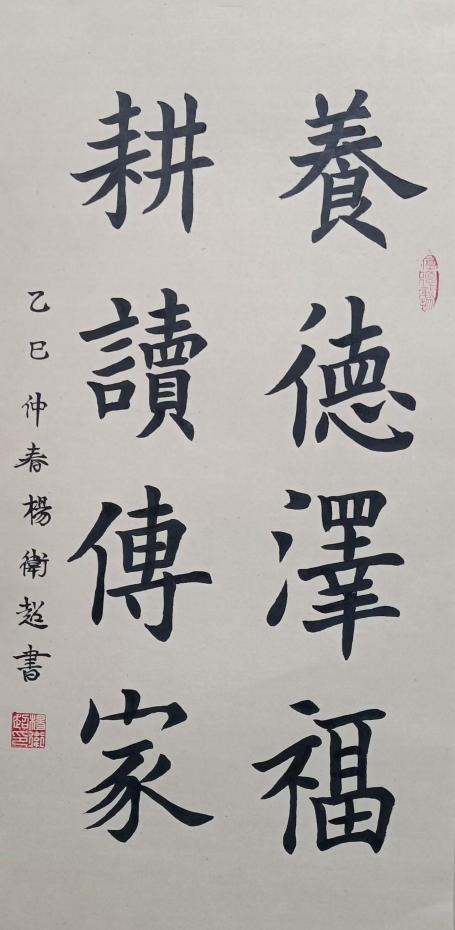 養德澤福
耕讀傳家
乙巳仲春楊衛超書